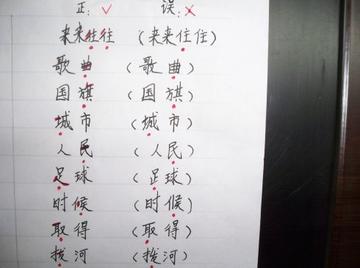 正：✓ 误：✗
来来往往 （来来住住）
歌曲 （歌曲）
国旗 （国旗）
城市 （城市）
人民 （人民）
足球 （足球）
时候 （时候）
取得 （取得）
拔河 （拨河）